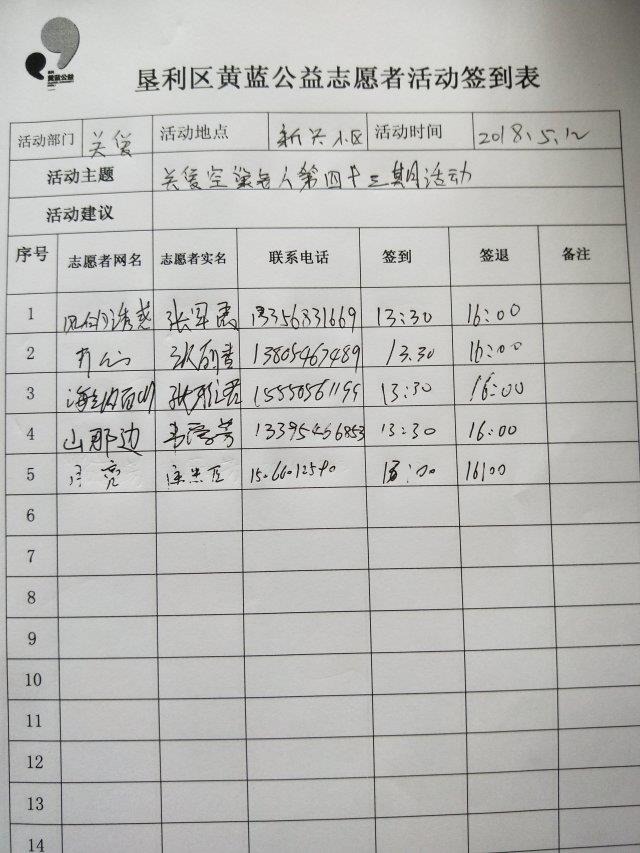 黄蓝公益
垦利区黄蓝公益志愿者活动签到表
活动部门 关爱 活动地点 新兴小区 活动时间 2018.5.12
活动主题 关爱空巢老人第四十三期活动
活动建议
序号 志愿者网名 志愿者实名 联系电话 签到 签退 备注
1 风的诱惑 张军 13356831669 13:30 16:00
2 开心 13805467489 13.30 16:00
3 海纳百川 15550561199 13:30 16:00
4 山那边 13395466853 13:30 16:00
5 16:00
6
7
8
9
10
11
12
13
14